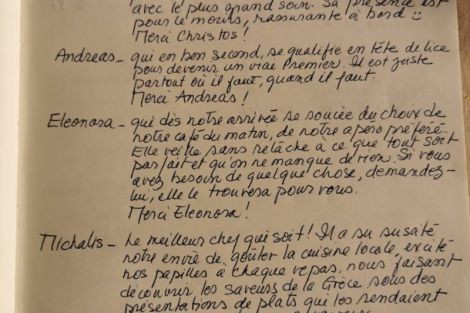 avec le plus grand soin. Sa présence est
pour le moins, rassurante à bord
Merci Christos !
Andreas - qui en bon second, se qualifie en tête de lice
pour devenir un vrai Premier. Il est juste
partout où il faut, quand il faut.
Merci Andreas !
Eleonora - qui dès notre arrivée se soucie du choix de
notre café du matin, de notre apéro préféré.
Elle veille sans relâche à ce que tout soit
parfait et qu'on ne manque de rien. Si vous
avez besoin de quelque chose, demandez-
lui, elle le trouvera pour vous.
Merci Eleonora !
Michalis - Le meilleur chef qui soit ! Il a su susciter
notre envie de goûter la cuisine locale, excité
nos papilles à chaque repas, nous faisant
découvrir les saveurs de la Grèce sous des
présentations de plats qui les rendaient